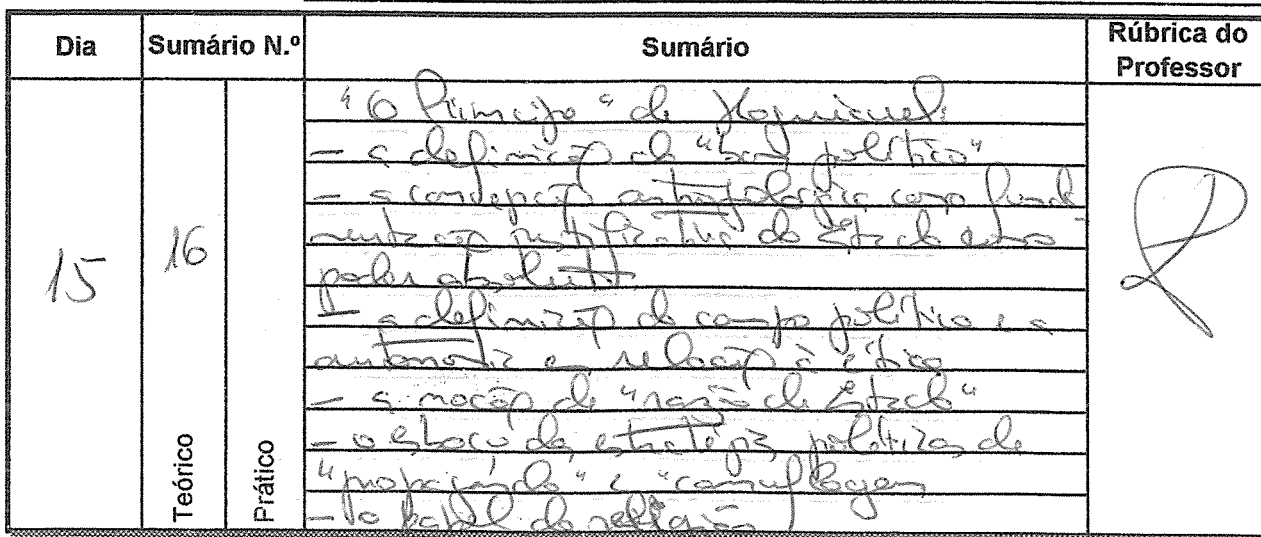 Dia Sumário N.º Sumário Rúbrica do Professor
15 16
Teórico Prático
"O Príncipe" de Maquiavel:
- a definição de "bom político"
- a concepção antropológica como funda-
mentação justificativa do Estado como
poder absoluto
- a definição do campo político e a
autonomia em relação à ética
- a noção de "razão de Estado"
- o esboço das estratégias políticas de
"propaganda" e "camuflagem
- o papel da religião